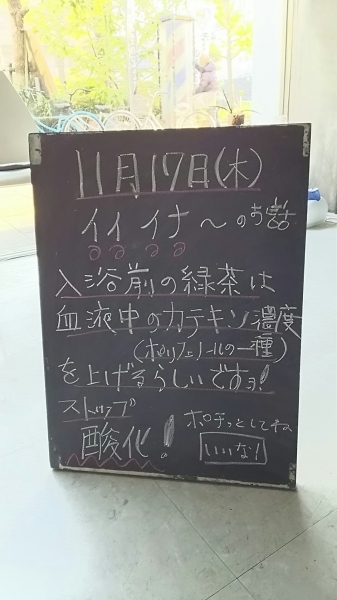 11月17日(木)
イイイナ〜のお話
入浴前の緑茶は
血液中のカテキン濃度
(ポリフェノールの一種)
を上げるらしいですョ!
ストップ
酸化!
ポチッとしてネ
いいな!